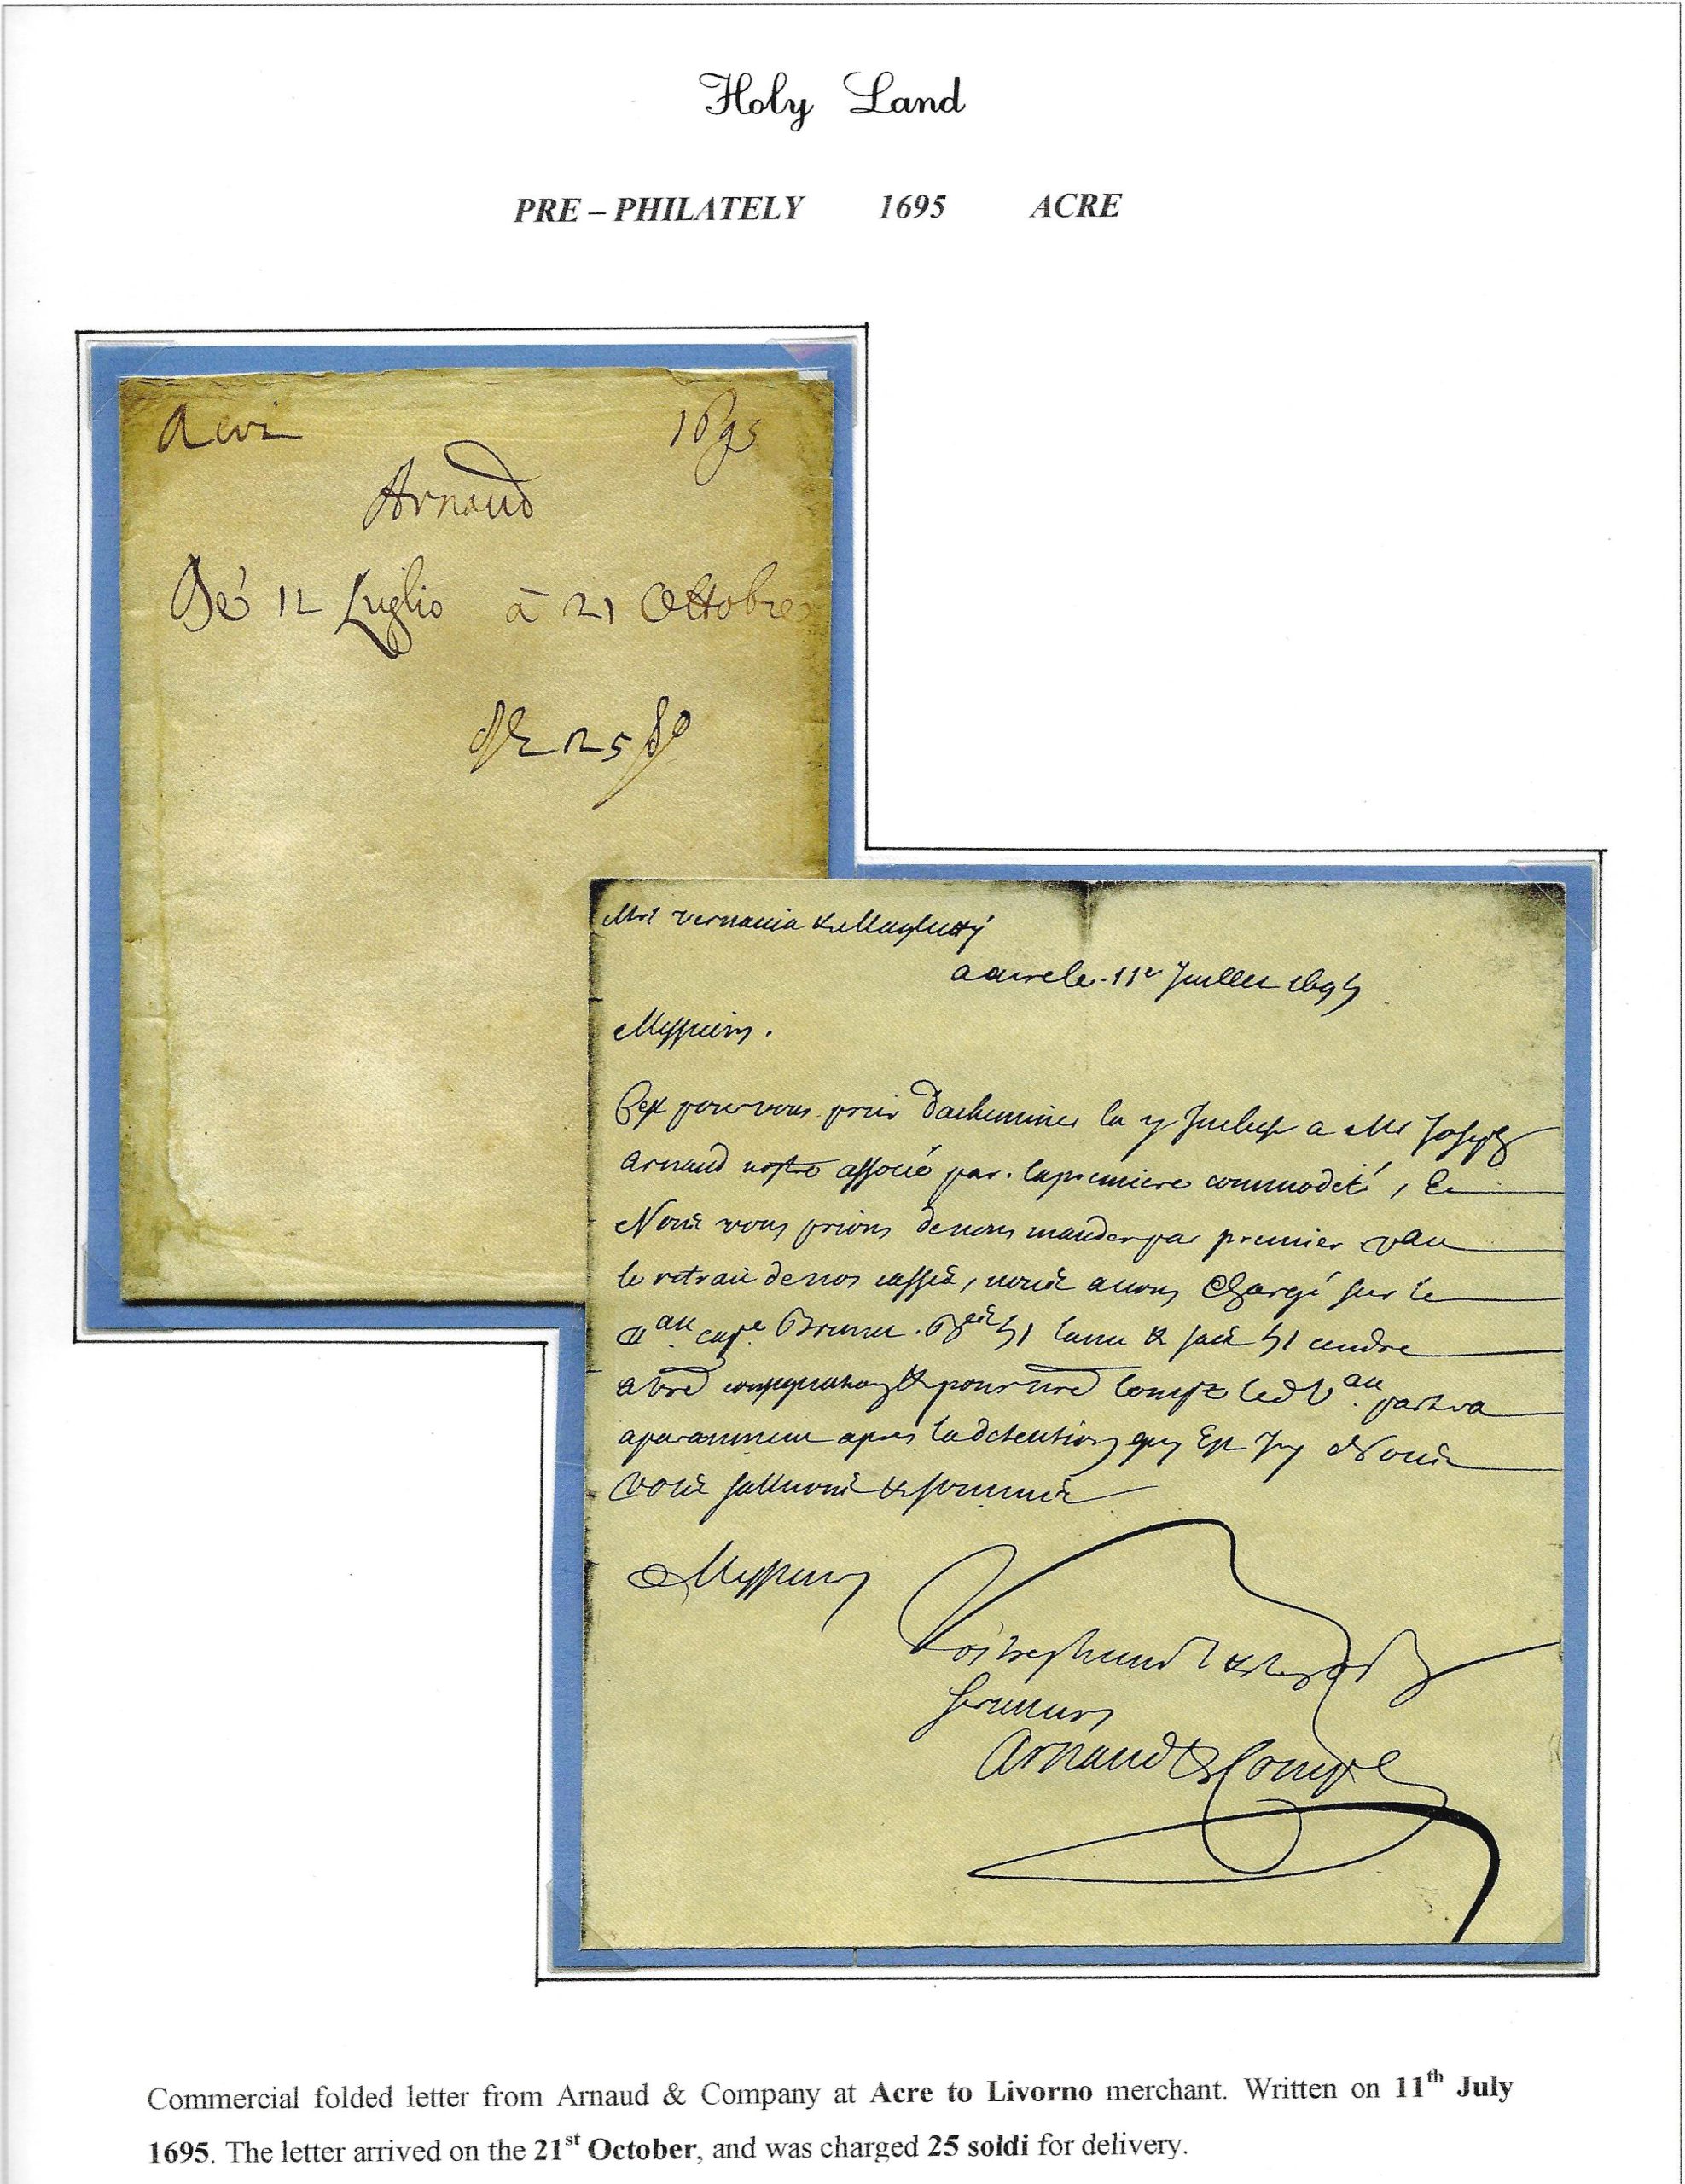 Holy Land
PRE – PHILATELY 1695 ACRE
Acri 1695
Arnaud
De 12 Luglio à 21 Ottobre
25
Mrs
a acre le 11e Juillet 1695
Messieurs.
Cest pour vous prier dacheminer la Incluse a Mr Joseph
Arnaud nostre associé par la premiere commodité, Et
Nous vous prions de nous mander par premier vau
le retrait de nos casses, nous avons Chargé sur le
vau cape 51 & sacs 51 cendre
a vre & pour nre compte led vau partira
apres la detention quy Est Icy Nous
vous salluons & sommes
Messieurs
Vos tres humbles &
serviteurs
Arnaud & Compe
Commercial folded letter from Arnaud & Company at Acre to Livorno merchant. Written on 11th July
1695. The letter arrived on the 21st October, and was charged 25 soldi for delivery.